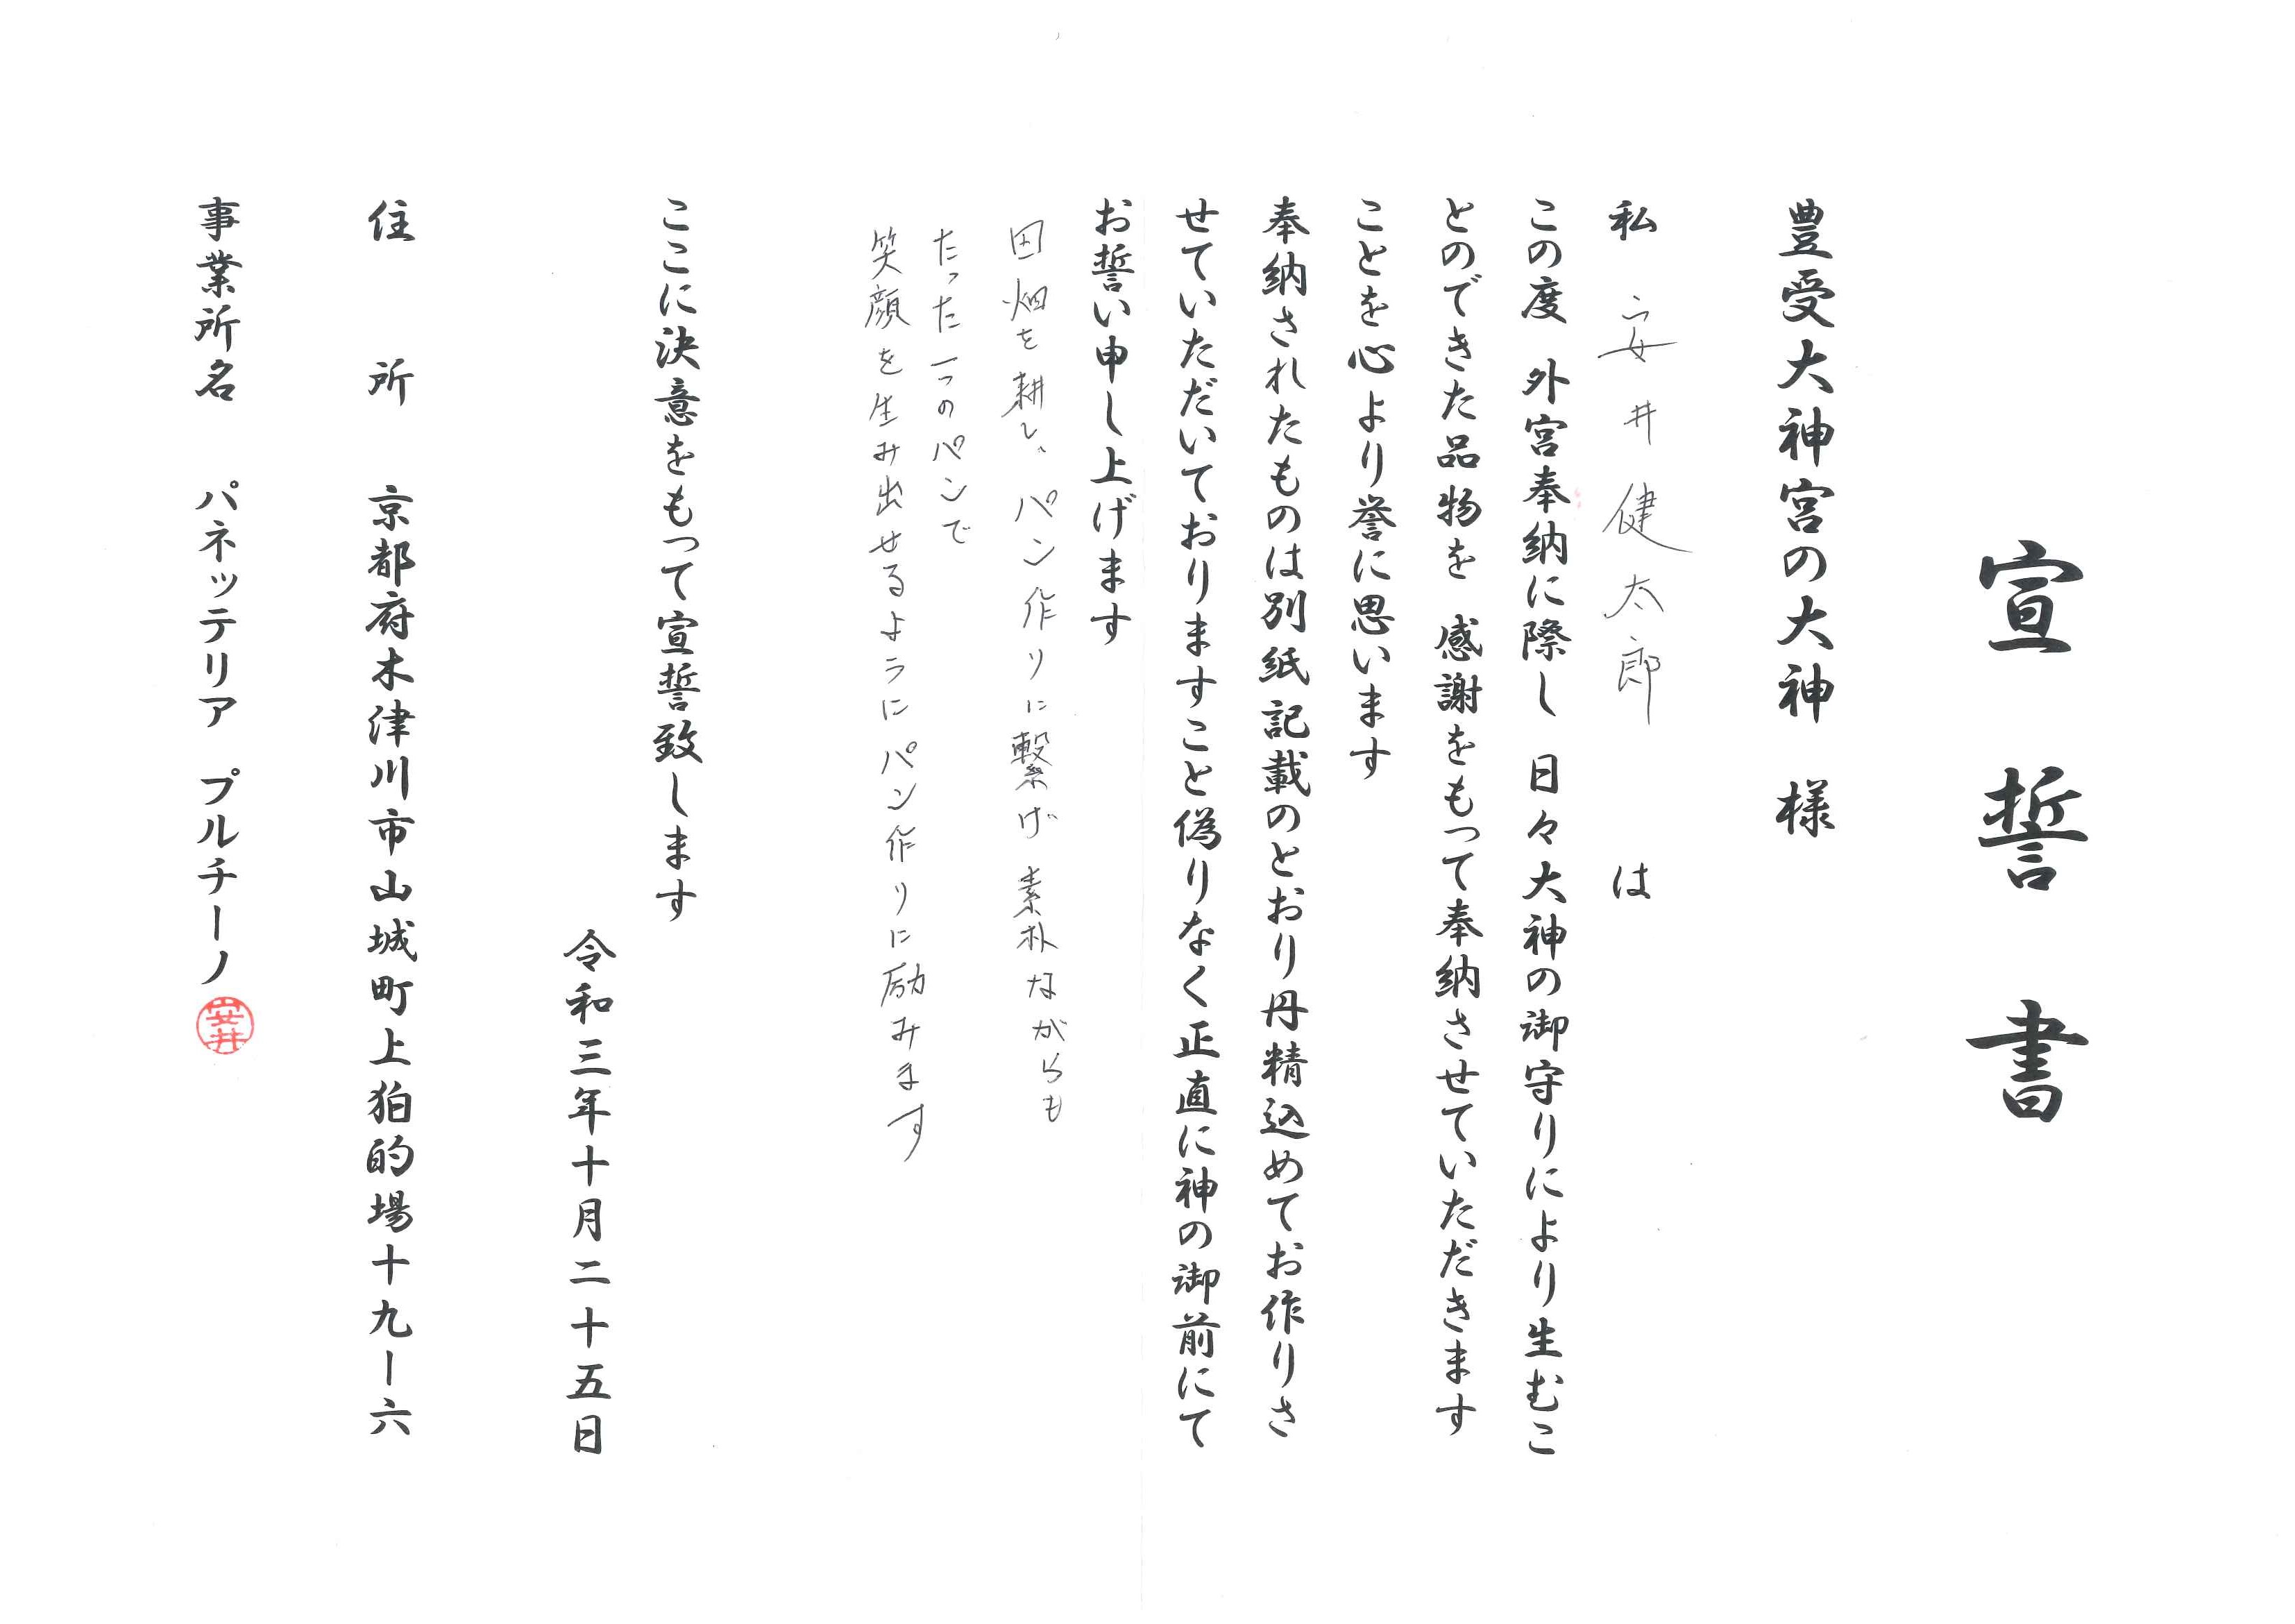 宣誓書
豊受大神宮の大神　様
私　安井健太郎　は
この度　外宮奉納に際し　日々大神の御守りにより生むこ
とのできた品物を　感謝をもって奉納させていただきます
ことを心より誉に思います
奉納されたものは別紙記載のとおり丹精込めてお作りさ
せていただいておりますこと偽りなく正直に神の御前にて
お誓い申し上げます
田畑を耕し、パン作りに繋げ素朴ながらも
たった一つのパンで
笑顔を生み出せるようにパン作りに励みます
ここに決意をもって宣誓致します
令和三年十月二十五日
住　所　京都府木津川市山城町上狛的場十九ー六
事業所名　パネッテリア　プルチーノ
安井